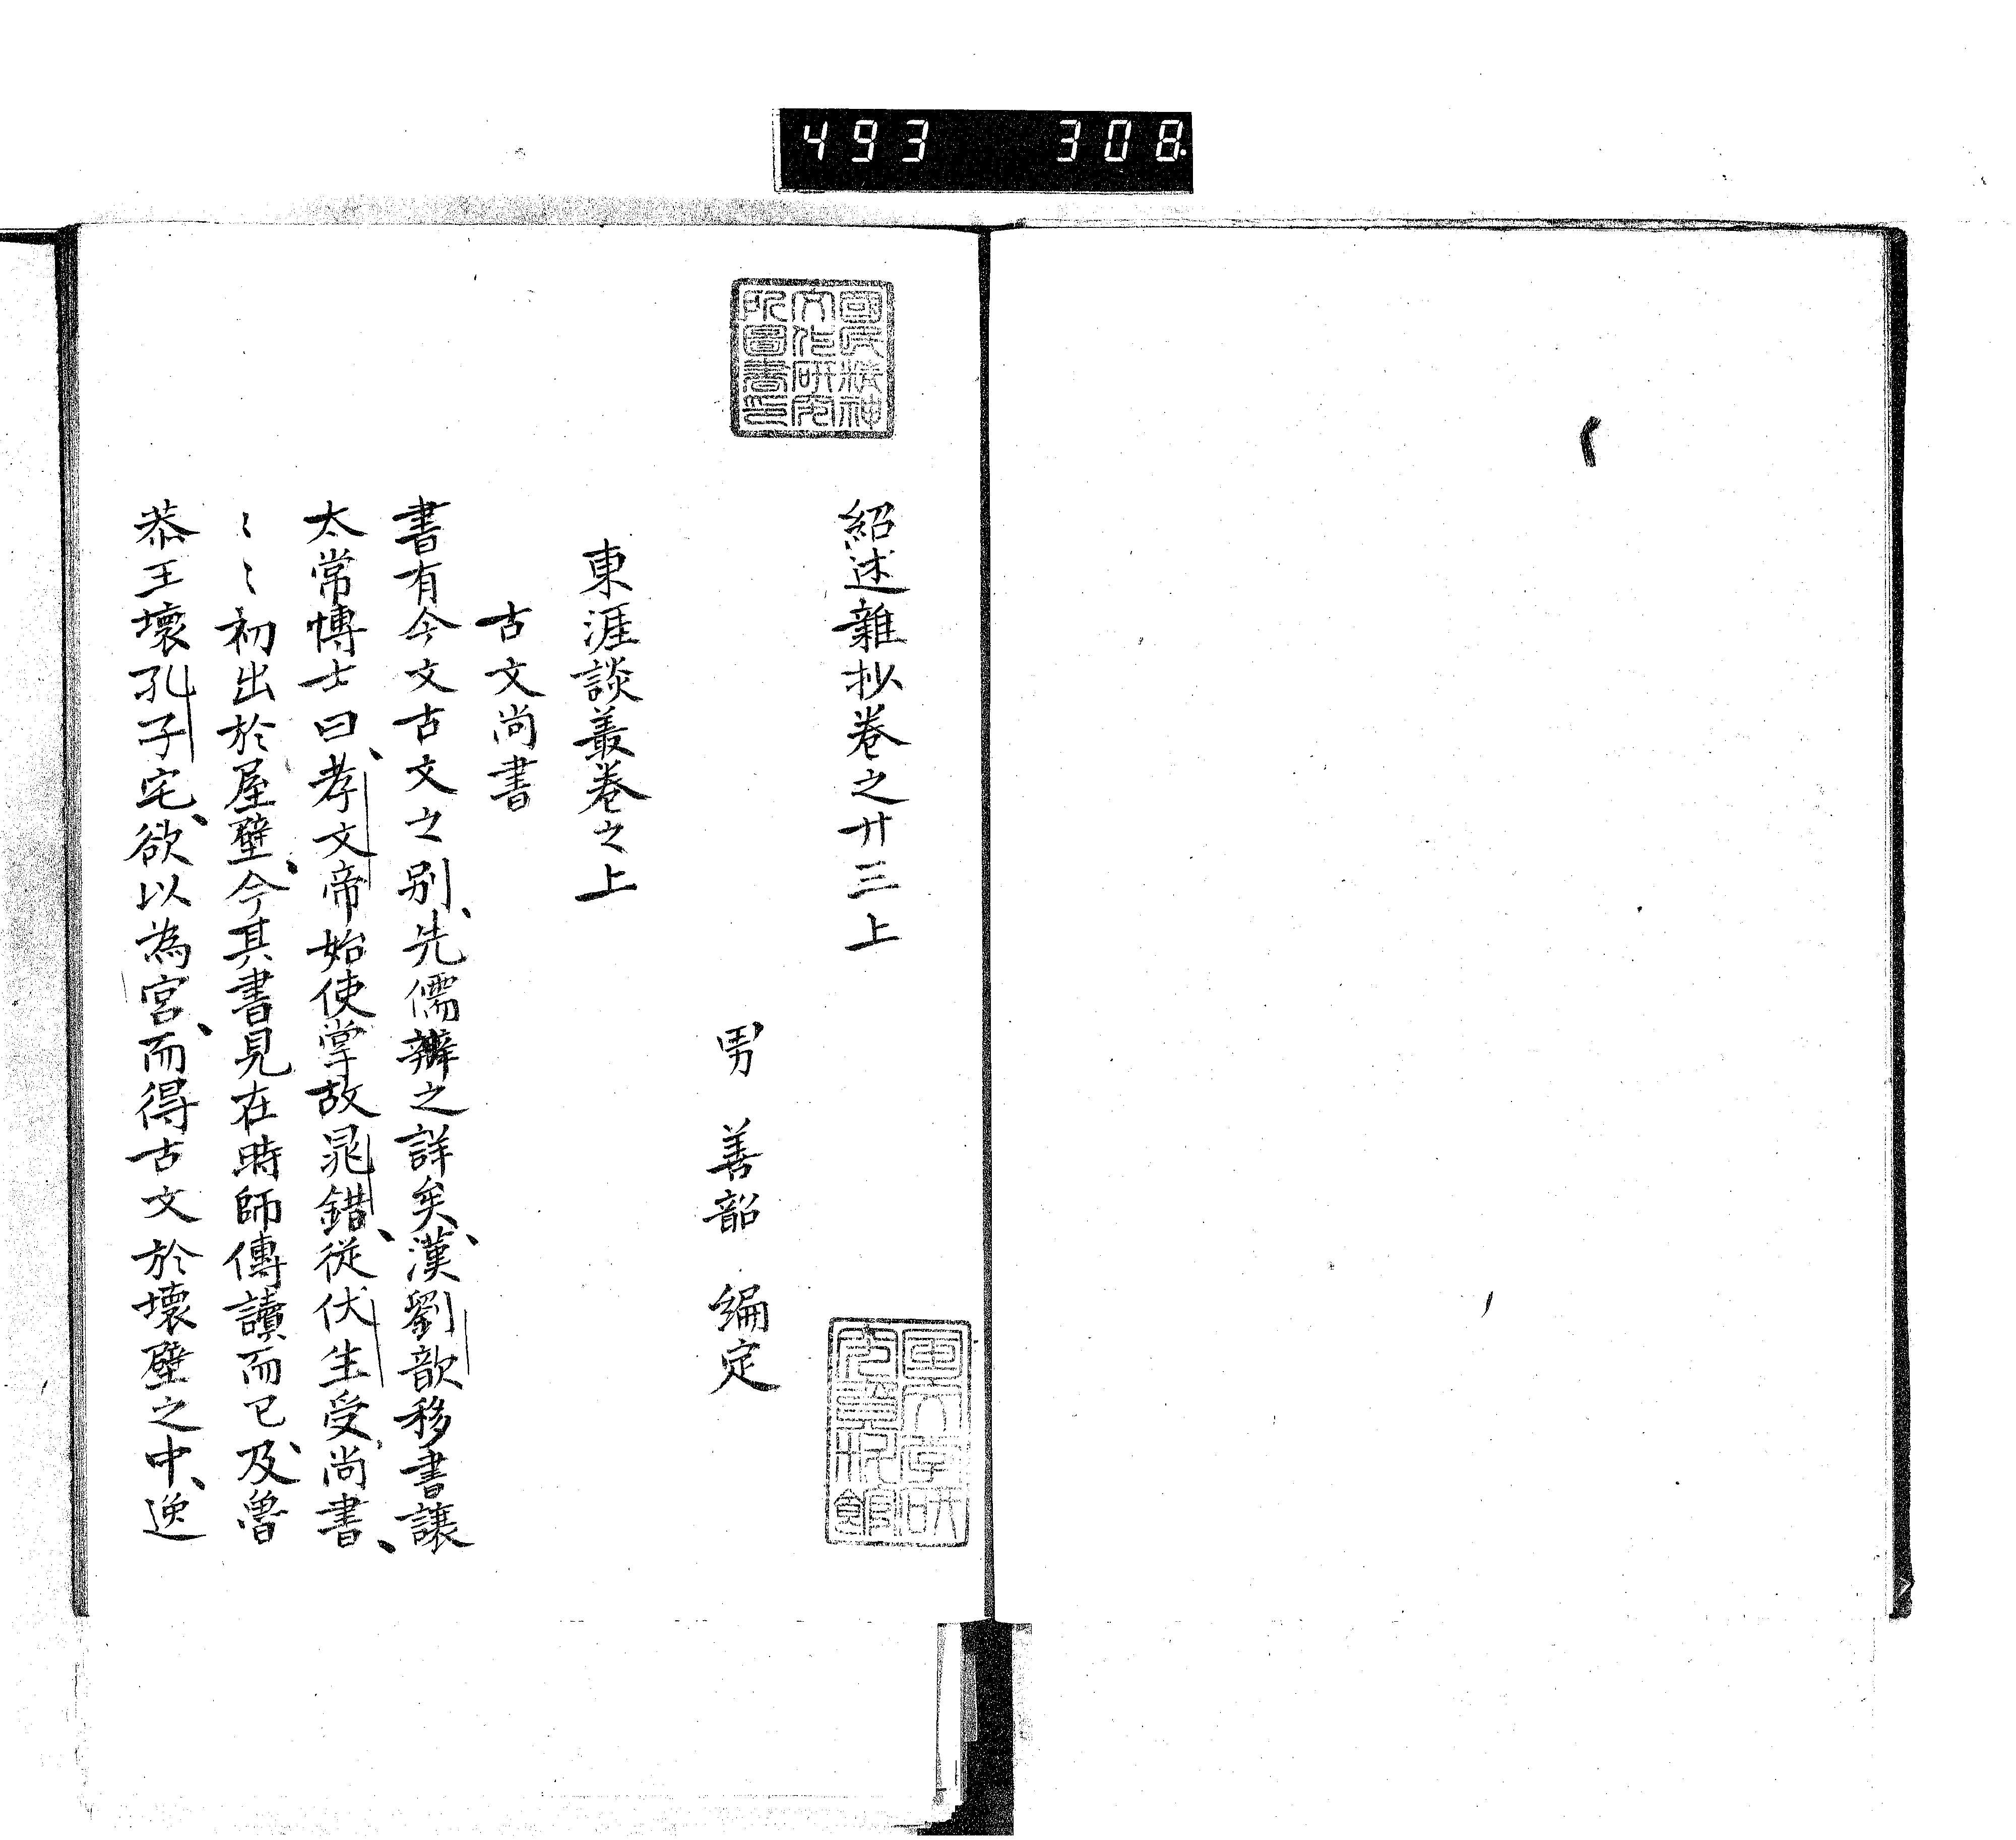 493 308
國民精神
文化研究
所圖書印
紹述雜抄卷之廿三上
男 善韶 編定
東涯談叢卷之上
古文尚書
書有今文古文之別、先儒辨之詳矣、漢劉歆移書讓
太常博士曰、孝文帝始使掌故晁錯、從伏生受尚書、
〻〻初出於屋壁、今其書見在時師傳讀而已、及魯
恭王壞孔子宅、欲以為宮、而得古文於壞壁之中、逸